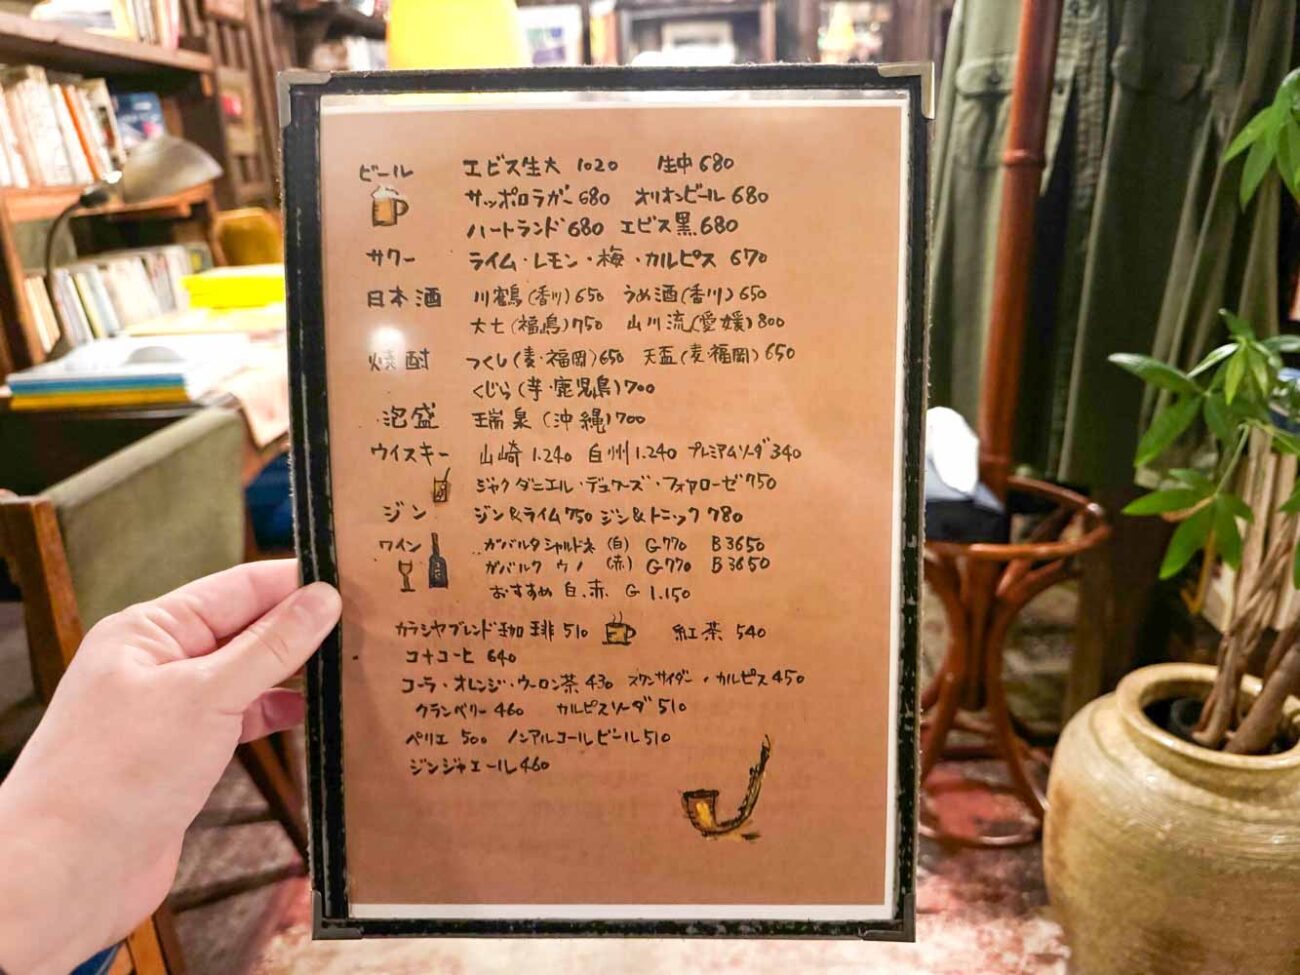 ビール エビス生大 1020 生中 680
サッポロラガー 680 オリオンビール 680
ハートランド 680 エビス黒 680
サワー ライム・レモン・梅・カルピス 670
日本酒 川鶴(香川) 650 うめ酒(香川) 650
大七(福島) 750 山川流(愛媛) 800
焼酎 つくし(麦・福岡) 650 天盃(麦・福岡) 650
くじら(芋・鹿児島) 700
泡盛 瑞泉(沖縄) 700
ウイスキー 山崎 1.240 白州 1.240 プレミアムソーダ 340
ジャクダニエル・デュワーズ・フォアローゼ 750
ジン ジン&ライム 750 ジン&トニック 780
ワイン ガバルタ シャルドネ (白) G770 B3650
ガバルク ウノ (赤) G770 B3650
おすすめ 白.赤. G 1.150
カラシヤブレンド珈琲 510 紅茶 540
コナコーヒ 640
コーラ・オレンジ・ウーロン茶 430 スワンサイダー・カルピス 450
クランベリー 460 カルピスソーダ 510
ペリエ 500 ノンアルコールビール 510
ジンジャエール 460